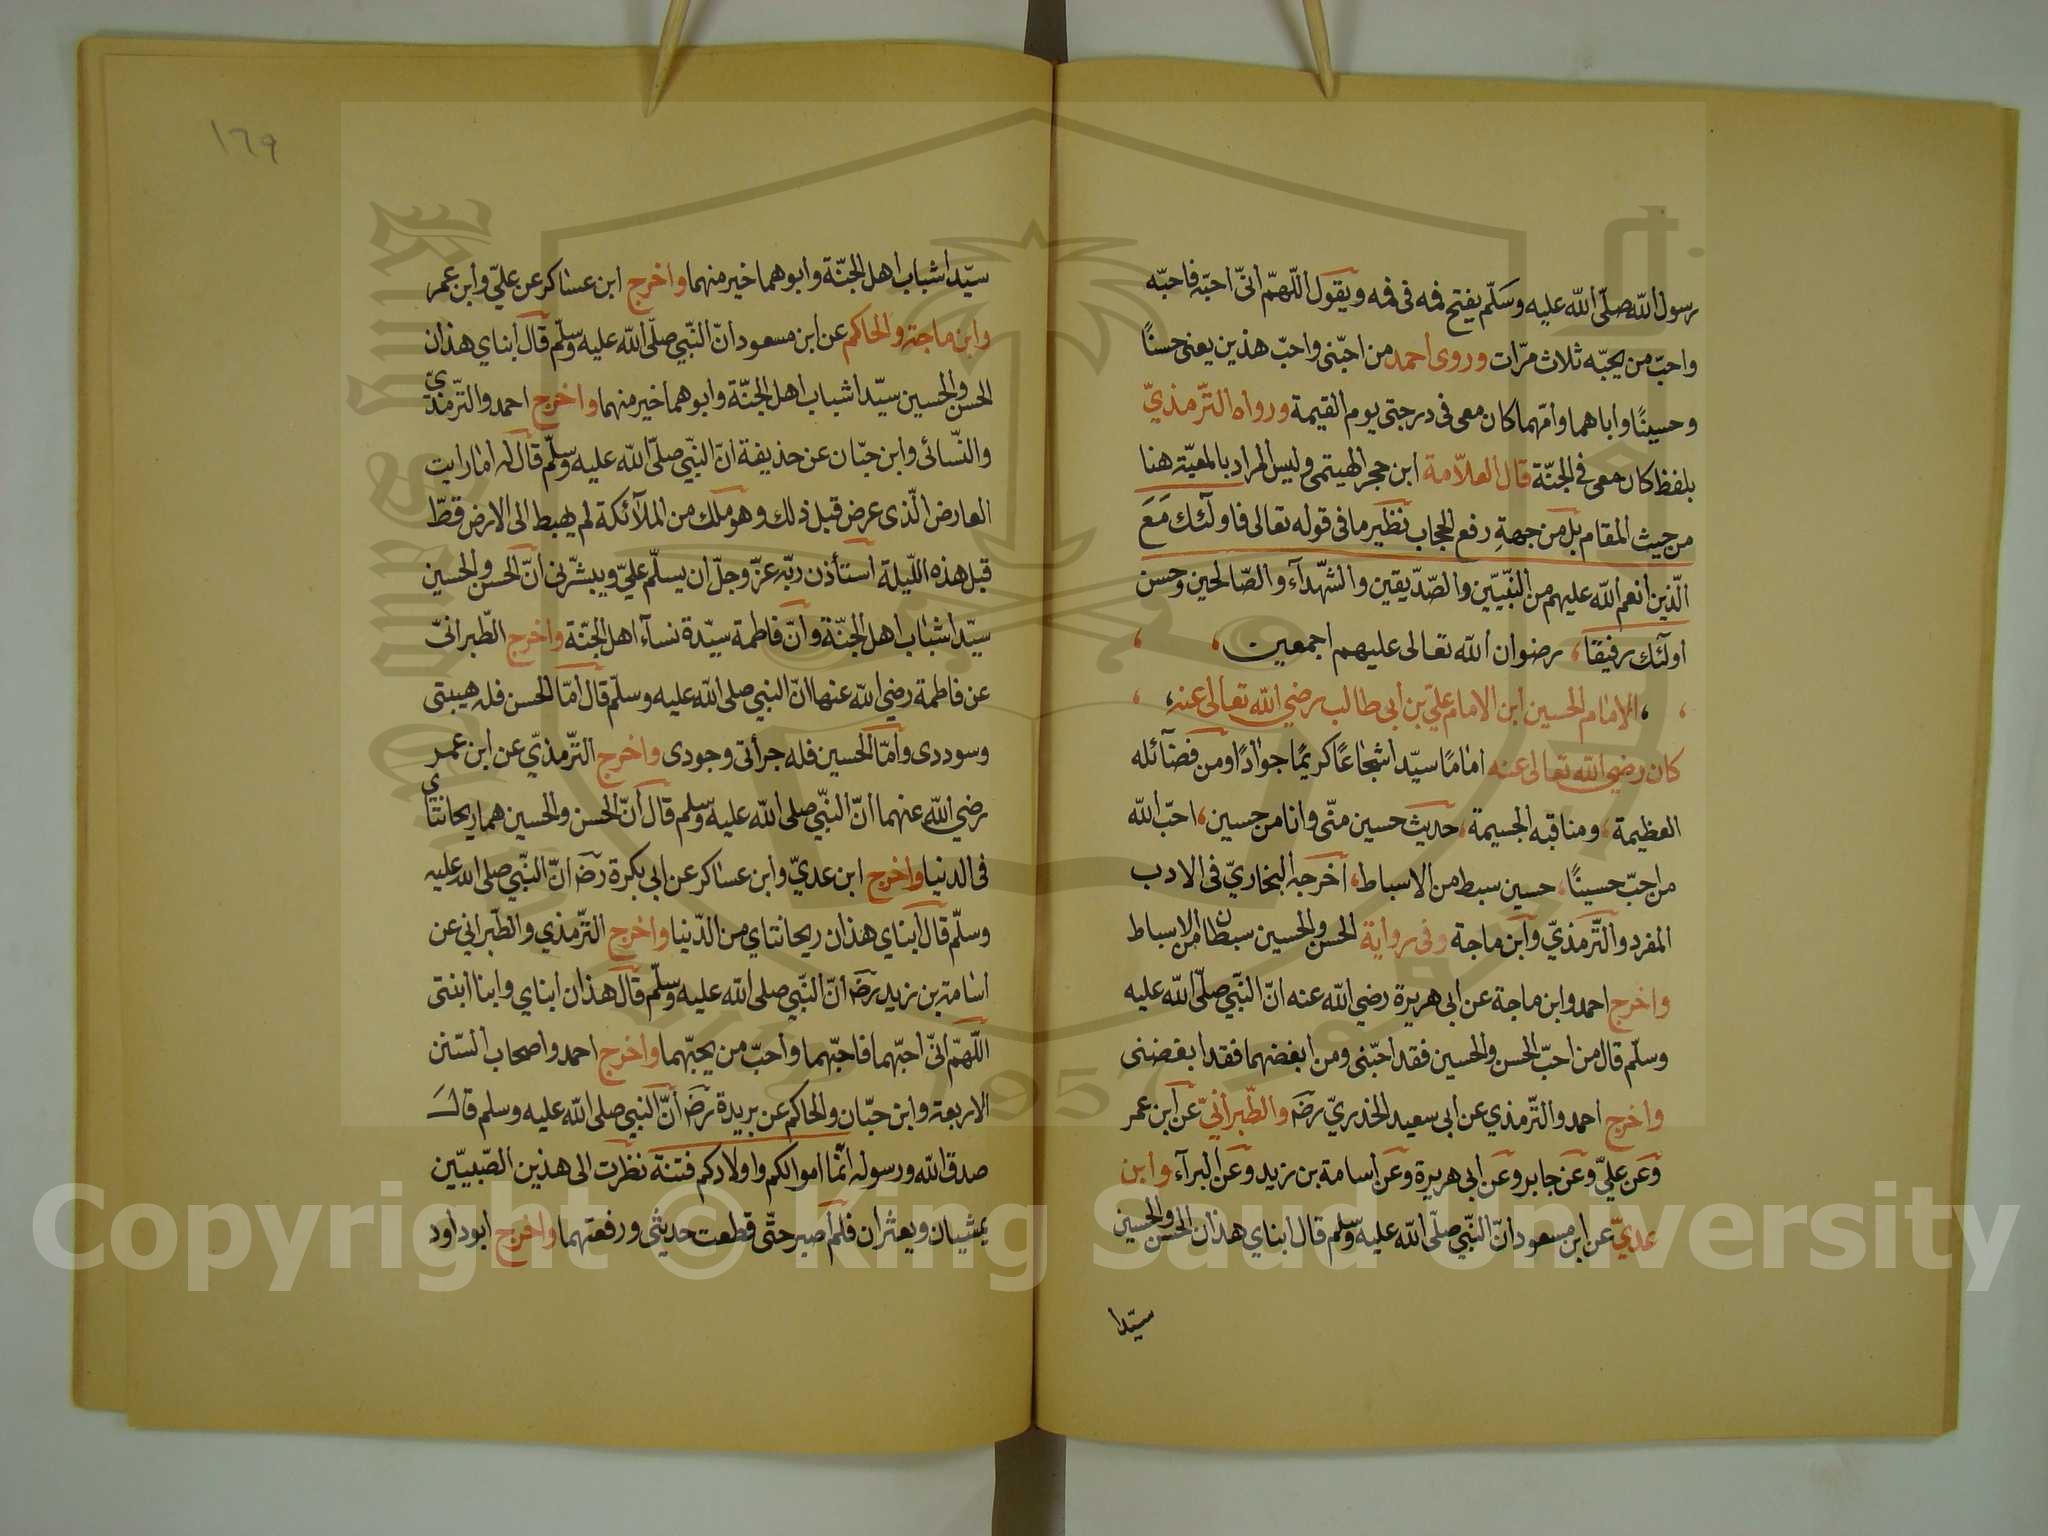 رسول الله صلّى الله عليه وسلّم يفتح فمه فى فمه ويقول اللّهمّ انّى احبّه فاحبّه
واحبّ من يحبّه ثلاث مرّات وروى احمد من احبّنى واحبّ هذين يعنى حسنًا
وحسينًا واباهما وامّهما كان معى فى درجتى يوم القيمة ورواه الترّمذيّ
بلفظ كان معى فى الجنّة قال العلاّمة ابن حجر الهيتمى وليس المراد بالمعيّة هنا
من حيث المقام بل من جهةِ رفع الحجاب نظير ما فى قوله تعالى فاولئك مَعَ
الّذين انعم الله عليهم من النّبيّين والصّدّيقين والشّهدآء والصّالحين وحسن
اولئك رفيقًا، رضوان الله تعالى عليهم اجمعين،
الامام الحسين ابن الامام عليّ بن ابى طالب رضي الله تعالى عنه،
كان رضي الله تعالى عنه امامًا سيّدا شجاعًا كريمًا جوادًا ومن فضآئله
العظيمة، ومناقبه الجسيمة، حديث حسين منّى وانا من حسين، احبّ الله
من احبّ حسينًا، حسين سبط من الاسباط، أخرجه البخاريّ فى الادب
المفرد والترّمذيّ وابن ماجة وفى رواية الحسن والحسين سبطان من الاسباط
واخرج احمد وابن ماجة عن ابى هريرة رضي الله عنه انّ النّبيّ صلّى الله عليه
وسلّم قال من احبّ الحسن والحسين فقد احبّنى ومن ابغضهما فقد ابغضنى
واخرج احمد والترّمذي عن ابى سعيد الخدريّ رضه والطّبرانيّ عن ابن عمر
وعن عليّ وعن جابر وعن ابى هريرة وعن أسامة بن زيد وعن البرآء وابن
عديّ عن ابن مسعود انّ النّبيّ صلّى الله عليه وسلّم قال ابناي هذان الحسن والحسين
سيّدا
١٦٩
سيّدا شباب اهل الجنّة وابوهما خير منهما واخرج ابن عساكر عن عليّ وابن عمر
وابن ماجة والحاكم عن ابن مسعود انّ النّبيّ صلّى الله عليه وسلّم قال ابناي هذان
الحسن والحسين سيّدا شباب اهل الجنّة وابوهما خير منهما واخرج احمد والترّمذيّ
والنّسائى وابن حبّان عن حذيفة انّ النّبيّ صلّى الله عليه وسلّم قال له اما رايت
العارض الّذى عرض قبل ذلك وهو ملك من الملآئكة لم يهبط الى الارض قطّ
قبل هذه اللّيلة استأذن ربّه عزّ وجلّ ان يسلّم عليّ ويبشّرنى انّ الحسن والحسين
سيّدا شباب اهل الجنّة وانّ فاطمة سيّدة نسآء اهل الجنّة واخرج الطّبرانىّ
عن فاطمة رضي الله عنها انّ النبي صلى الله عليه وسلّم قال أمّا الحسن فله هيبتى
وسوددى وأمّا الحسين فله جرأتى وجودى واخرج الترّمذيّ عن ابن عمر
رضي الله عنهما انّ النّبيّ صلى الله عليه وسلم قال انّ الحسن والحسين هما ريحانتاي
فى الدنيا واخرج ابن عديّ وابن عساكر عن ابى بكرة رضه انّ النّبيّ صلى الله عليه
وسلّم قال ابناي هذان ريحانتاي من الدّنيا واخرج الترّمذي والطّبراني عن
اسامة بن زيد رضه انّ النّبيّ صلى الله عليه وسلّم قال هذان ابناي وابنا ابنتى
اللّهمّ انّى احبّهما فاحبّهما وأحبّ من يحبّهما واخرج احمد واصحاب السّنن
الاربعة وابن حبّان والحاكم عن بريدة رضه انّ النّبي صلى الله عليه وسلم قال
صدق الله ورسوله انّما اموالكم واولادكم فتنة نظرت الى هذين الصّبيّين
يمشيان ويعثران فلم اصبر حتّى قطعت حديثى ورفعتهما واخرج ابو داود
Copyright © King Saud University
1957